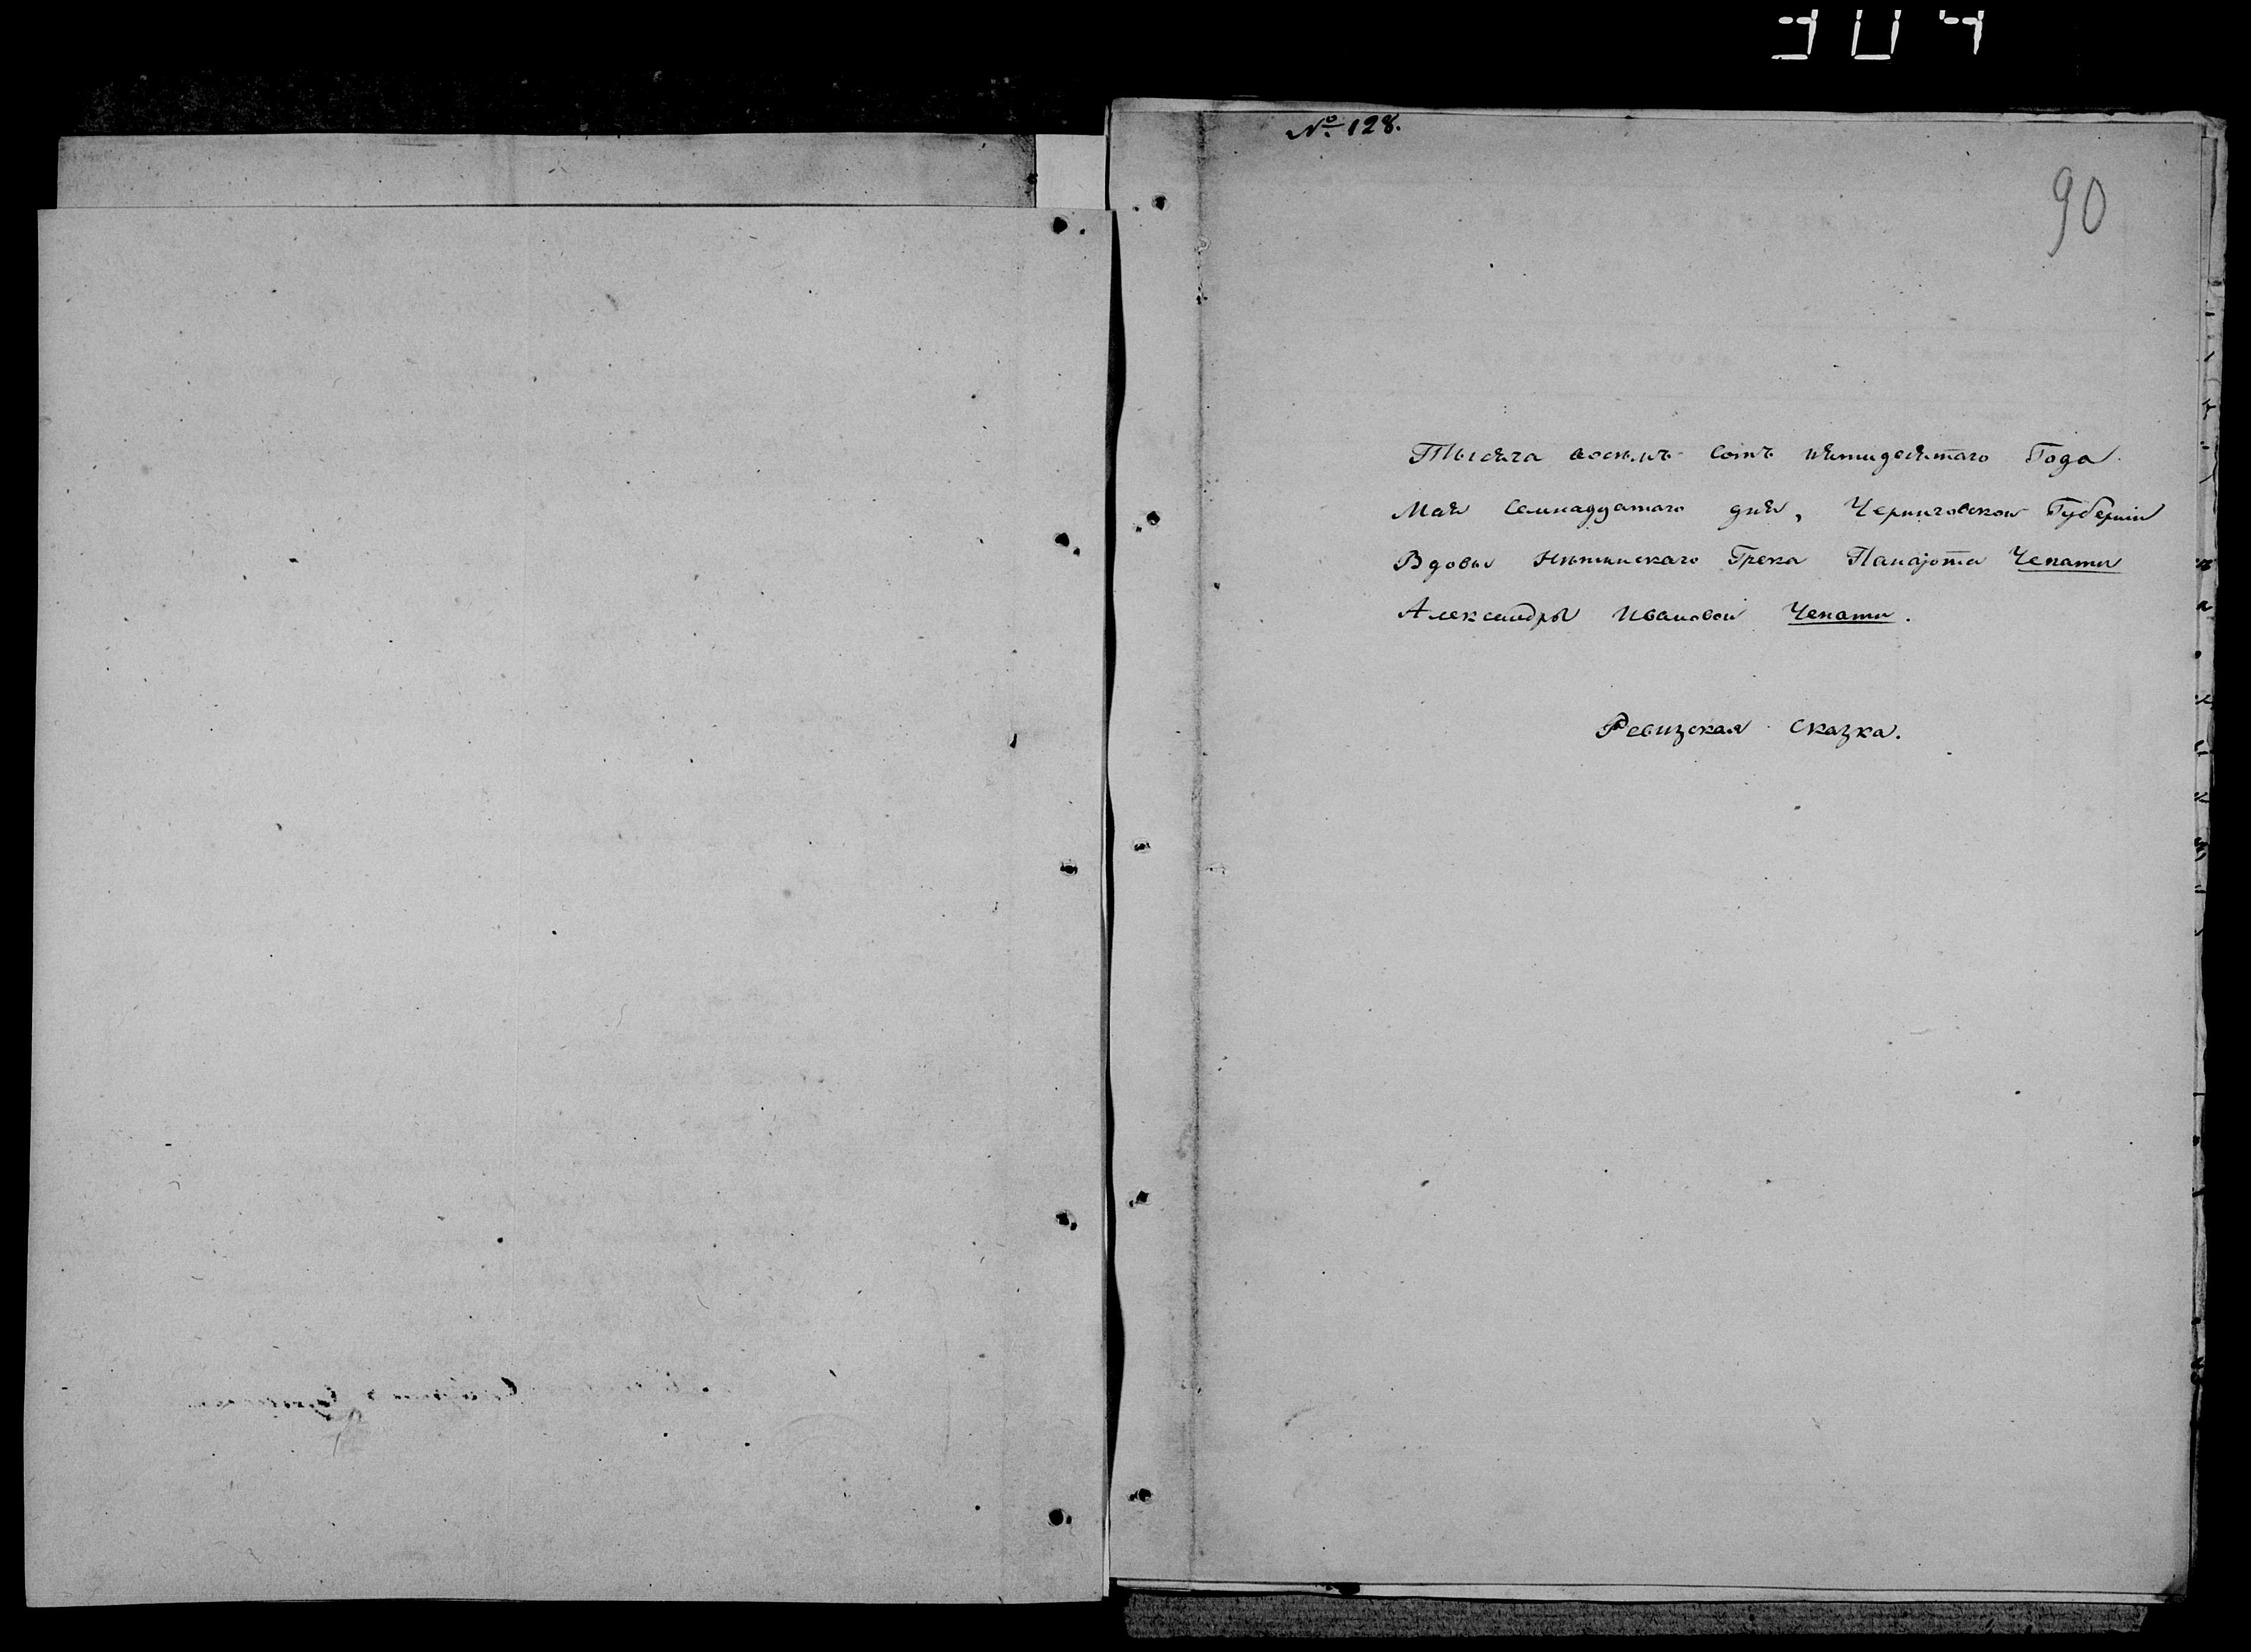 № 128.
90
Тысяча восемь сотъ пятидесятаго Года
Мая Семнадцатаго дня, Черниговской Губерніи
Вдовы Нѣжинскаго Грека Панаіота Чепати
Александры Ивановой Чепати.
Ревизская сказка.